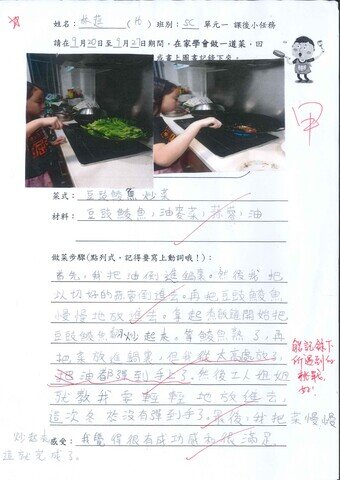 姓名：林 （16） 班別：5C 單元一 課後小任務
請在9月20日至9月27日期間，在家學會做一道菜，回
或畫上圖畫記錄下來。
甲
菜式：豆豉鯪魚炒菜
材料：豆豉鯪魚，油麥菜，蒜蓉，油
做菜步驟(點列式，記得要寫上動詞哦！)：
首先，我把油倒進鍋裏。然後我把
以切好的蒜蓉倒進去。再把豆豉鯪魚
慢慢地放進去。拿起 開始把
豆豉鯪魚翻炒起來。等鯪魚熟了，再
把菜放進鍋裏，但我從太高處放了，
把油都彈到手上了。然後工人姐姐
就教我要輕輕地放進去，
這次 沒有彈到手了。最後，我把菜慢慢
炒起來
這就完成了。
能記錄下
所遇到的
挑戰，
好！
感受：我覺得很有成功感和很滿足